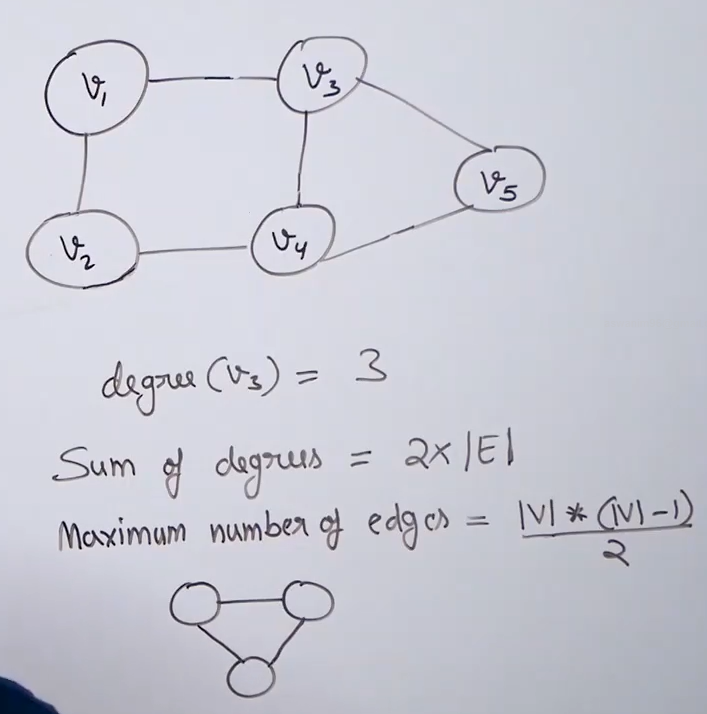 v₁ v₃
v₅
v₂ v₄
degree (v₃) = 3
Sum of degrees = 2×|E|
Maximum number of edges = |V| * (|V|-1)
2